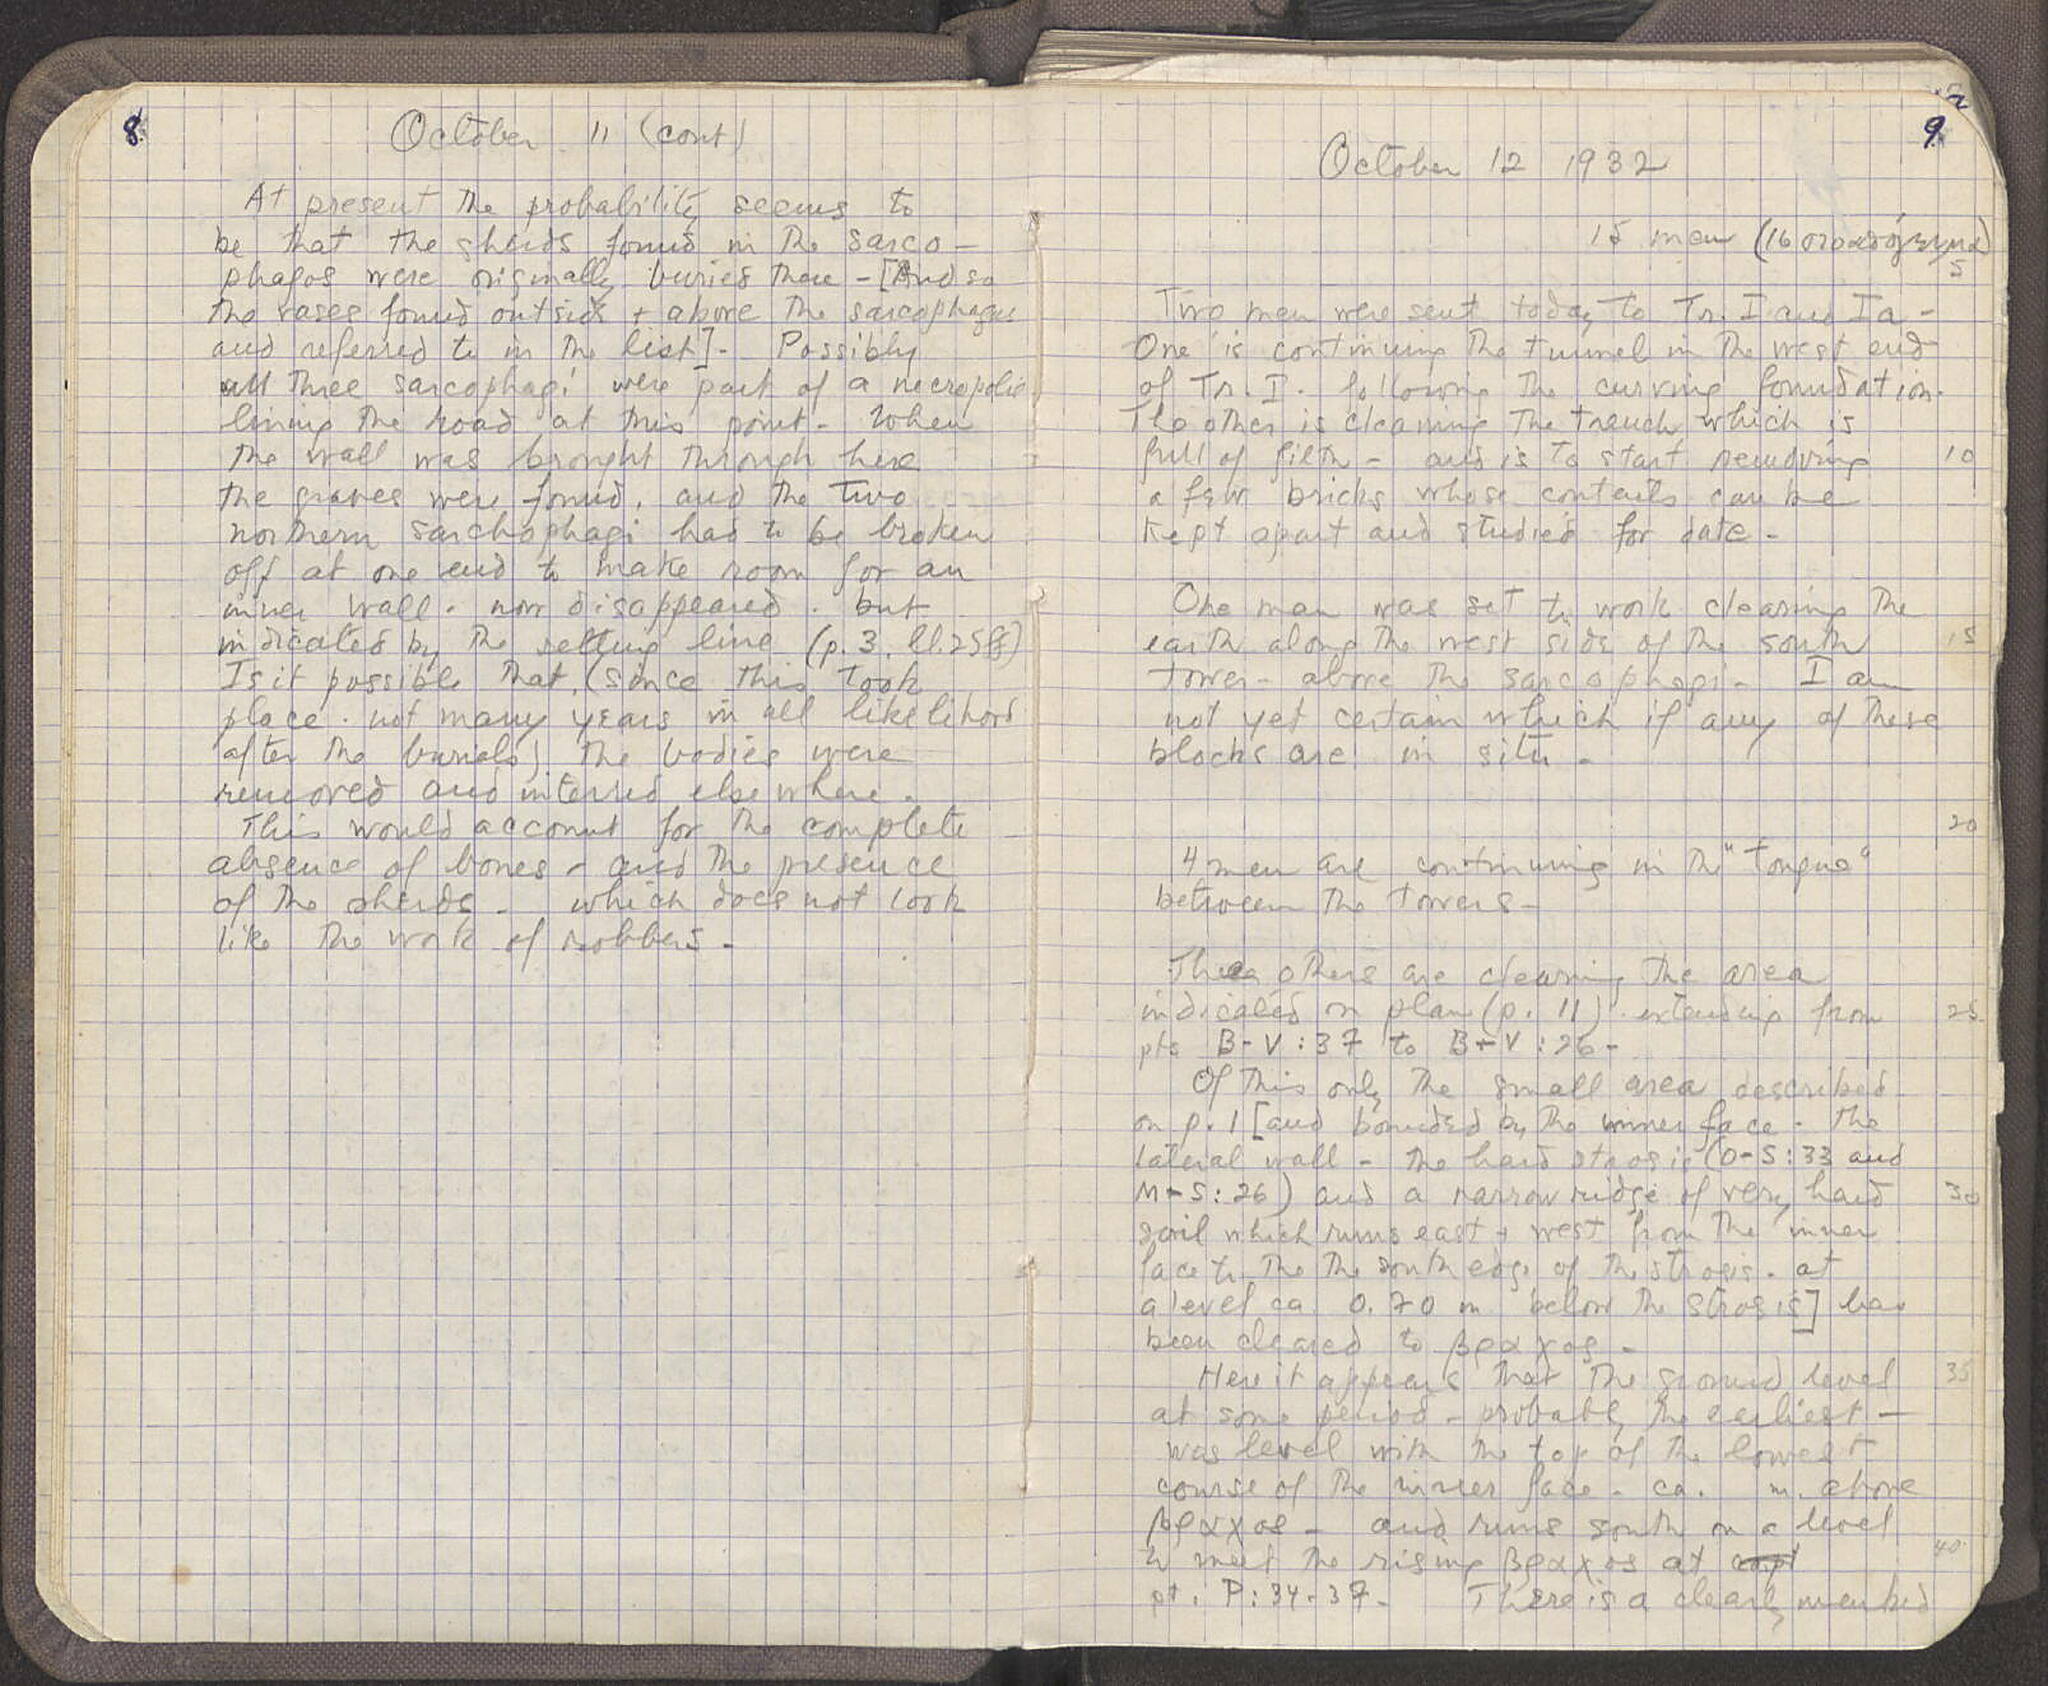 8.
October 11 (cont)
At present the probability seems to
be that the sherds found in the sarco-
phagos were originally buried there - [And so
the vases found outside + above the sarcophagus
and referred to in the list]- Possibly
all three sarcophagi were part of a necropolis
lining the road at this point- When
the wall was brought through here
the graves were found, and the two
northern sarchophagi had to be broken
off at one end to make room for an
inner wall. now disappeared. but
indicated by the setting line (p. 3. ll. 25ff)
Is it possible that, (since this took
place. not many years in all likelihood
after the burials) the bodies were
removed and interred elsewhere.
This would account for the complete
absence of bones - and the presence
of the sherds - which does not look
like the work of robbers -
9.
October 12 1932
15 men (16
5
Two men were sent today to Tr. I and Ia -
One is continuing the tunnel in the west end
of Tr. I. following the curving foundation.
The other is cleaning the trench, which is
full of filth - and is to start removing
10
a few bricks whose contents can be
kept apart and studied for date -
One man was set to work clearing the
earth along the west side of the south
15
tower - above the sarcophagi - I am
not yet certain which if any of these
blocks are in situ -
20
4 men are continuing in the "tongue"
between the towers -
Three others are clearing the area
indicated on plan (p. 11) extending from
25
pts B-V:37 to B-V:26 -
Of this only the small area described
on p. 1 [and bounded by the inner face - the
lateral wall - the hard strosis (O-S:33 and
M-S:26) and a narrow ridge of very hard
30
soil which runs east + west from the inner
face to the the south edge of the strosis. at
a level ca. 0.70 m below the strosis] has
been cleared to βραχος -
Here it appears that the ground level
35
at some period - probably the earliest -
was level with the top of the lowest
course of the inner face - ca. m. above
βραχος - and runs south on a level
to meet the rising βραχος at
40
pt. P:34-37 - There is a clearly marked